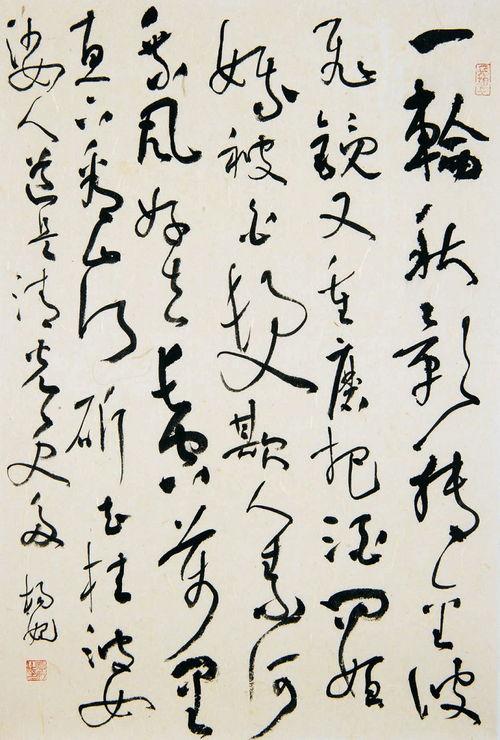 一輪秋影轉金波
飛鏡又重磨把酒問姮
娥被白髮欺人奈何
乘風好去長空萬里
直下看山河斫去桂婆
娑人道是清光更多